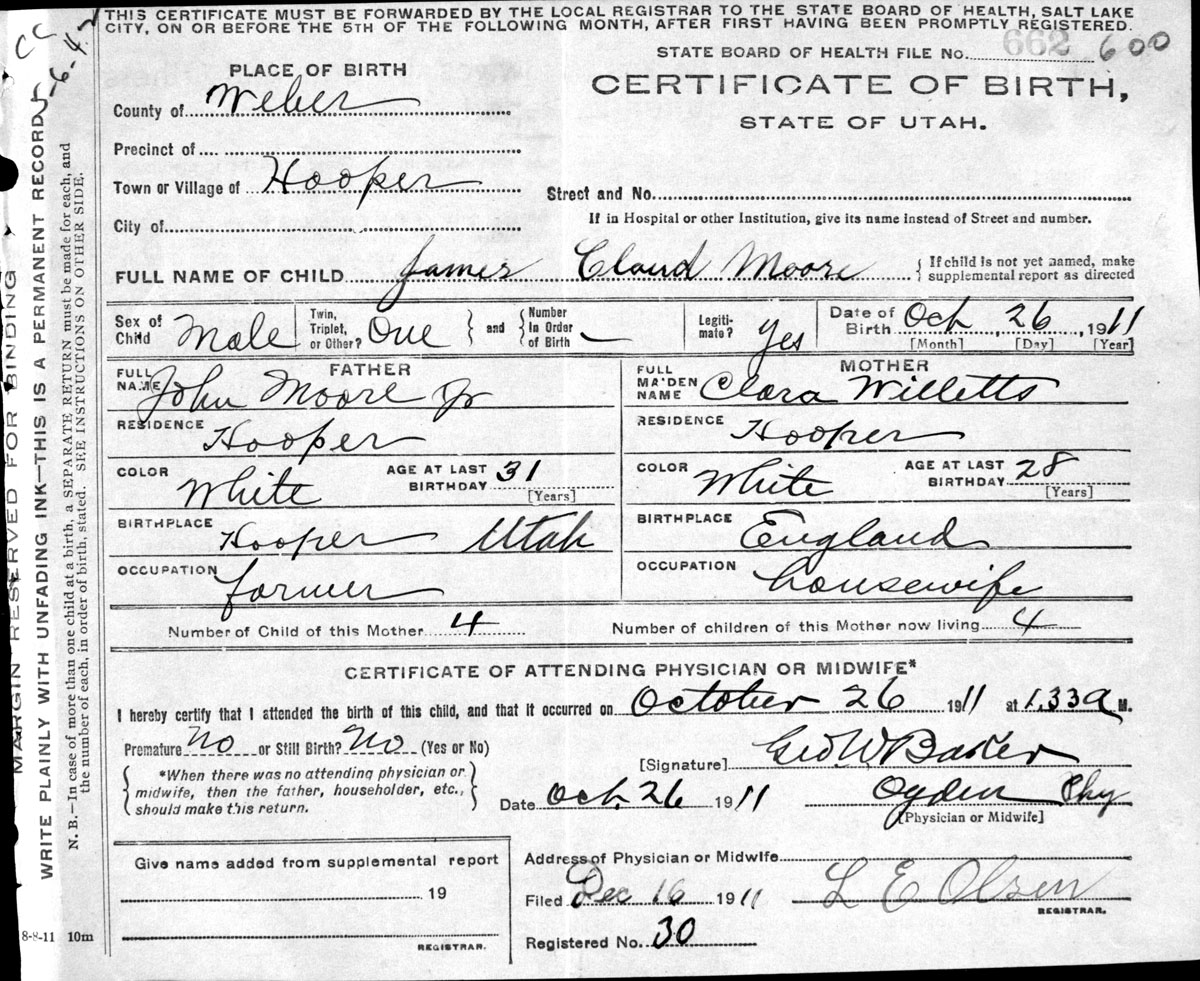 THIS CERTIFICATE MUST BE FORWARDED BY THE LOCAL REGISTRAR TO THE STATE BOARD OF HEALTH, SALT LAKE
CITY, ON OR BEFORE THE 5TH OF THE FOLLOWING MONTH, AFTER FIRST HAVING BEEN PROMPTLY REGISTERED.
STATE BOARD OF HEALTH FILE No. 662 600
PLACE OF BIRTH
CERTIFICATE OF BIRTH,
STATE OF UTAH.
County of Weber
Precinct of
Town or Village of Hooper
Street and No.
City of
If in Hospital or other Institution, give its name instead of Street and number.
FULL NAME OF CHILD James Claud Moore { If child is not yet named, make
supplemental report as directed
Sex of Child Male
Twin, Triplet, or Other? One } and { Number In Order of Birth —
Legiti-mate? Yes
Date of Birth Oct, 26, 1911
[Month] [Day] [Year]
FATHER
FULL NAME John Moore Jr
RESIDENCE Hooper
COLOR White AGE AT LAST BIRTHDAY 31 [Years]
BIRTHPLACE Hooper Utah
OCCUPATION farmer
MOTHER
FULL MAIDEN NAME Clara Willetts
RESIDENCE Hooper
COLOR White AGE AT LAST BIRTHDAY 28 [Years]
BIRTHPLACE England
OCCUPATION housewife
Number of Child of this Mother 4 Number of children of this Mother now living 4
CERTIFICATE OF ATTENDING PHYSICIAN OR MIDWIFE*
I hereby certify that I attended the birth of this child, and that it occurred on October 26 1911 at 1.33 a M.
Premature No or Still Birth? No (Yes or No)
*When there was no attending physician or
midwife, then the father, householder, etc.,
should make this return.
[Signature] Geo W Baker
Date Oct. 26 1911 Ogden Phy
[Physician or Midwife]
Give name added from supplemental report
19
REGISTRAR.
Address of Physician or Midwife
Filed Dec 16 1911 L E Olsen
REGISTRAR.
Registered No. 30
8-8-11 10m
MARGIN RESERVED FOR BINDING
WRITE PLAINLY WITH UNFADING INK—THIS IS A PERMANENT RECORD
N. B.—In case of more than one child at a birth, a SEPARATE RETURN must be made for each, and
the number of each, in order of birth, stated. SEE INSTRUCTIONS ON OTHER SIDE.